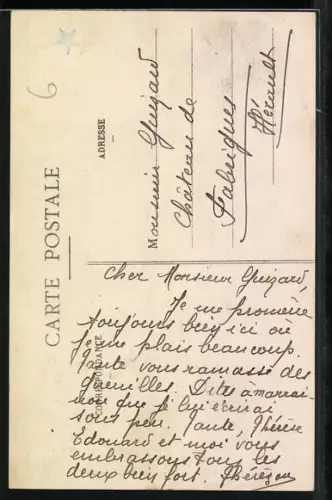 6
CARTE POSTALE
ADRESSE
Monsieur Guizard
Château de
Fabrègues
Hérault
CORRESPONDANCE
Cher Monsieur Guizard,
Je me promène
toujours bien ici où
je me plais beaucoup.
vous ramasse des
Dites à marrai-
ne que je lui écrirai
sous peu. Tante, Thérèse
Edouard et moi vous
embrassons tous les
deux bien fort.